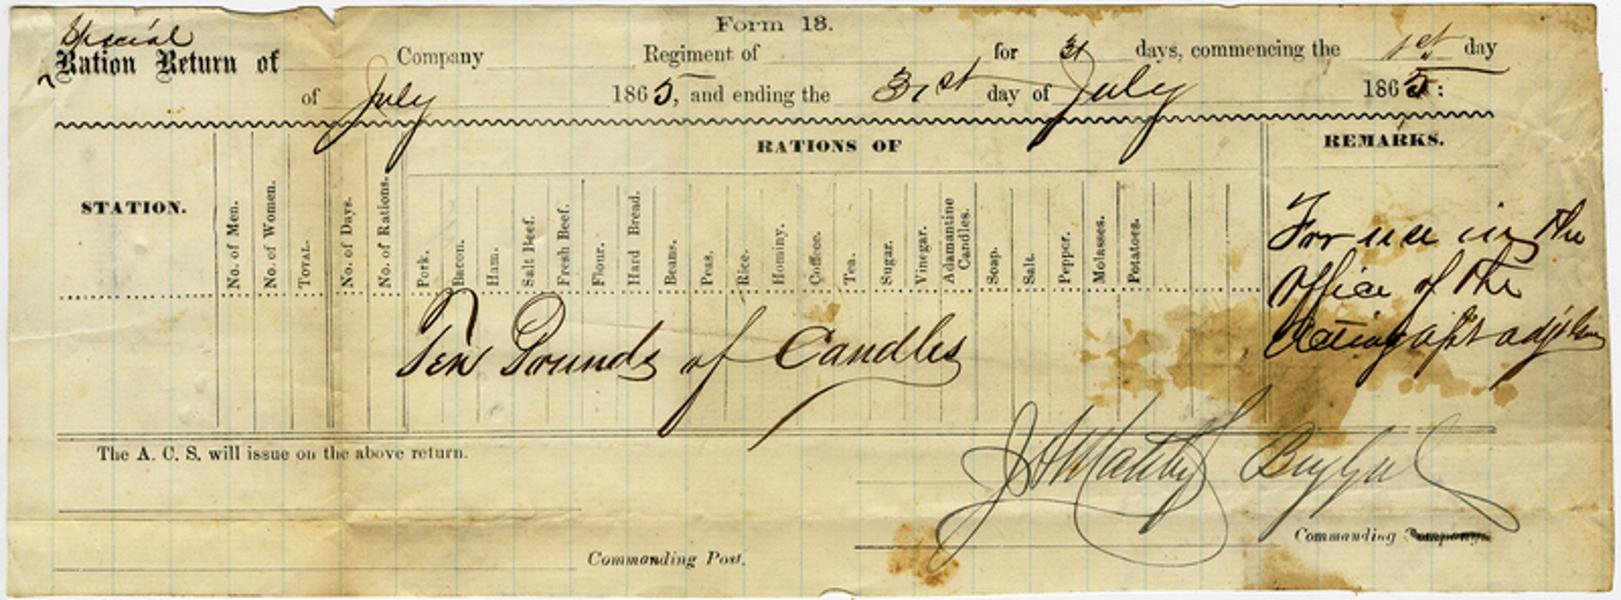 Form 18.
Special
Ration Return of Company Regiment of for 31 days, commencing the 1st day
of July 1865, and ending the 31st day of July 1865:
RATIONS OF
REMARKS.
STATION.
No. of Men.
No. of Women.
TOTAL.
No. of Days.
No. of Rations.
Pork.
Bacon.
Ham.
Salt Beef.
Fresh Beef.
Flour.
Hard Bread.
Beans.
Peas.
Rice.
Hominy.
Coffee.
Tea.
Sugar.
Vinegar.
Adamantine
Candles.
Soap.
Salt.
Pepper.
Molasses.
Potatoes.
For use in the
Office of the
Acting
Ten Pounds of Candles
The A. C. S. will issue on the above return.
J A Maltby Brig Gen
Commanding Company.
Commanding Post.